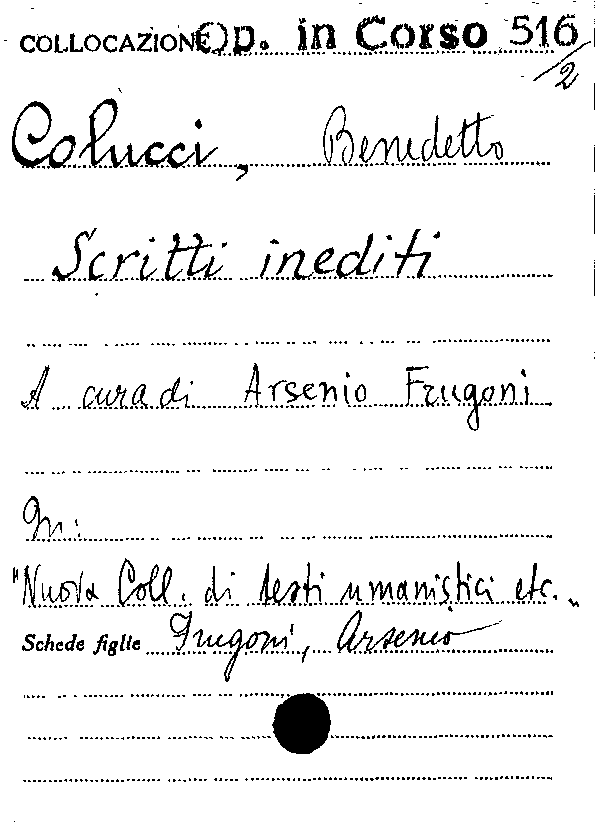 COLLOCAZIONE Op. in Corso 516
/2
Colucci, Benedetto
Scritti inediti
A cura di Arsenio Frugoni
In:
"Nuova Coll. di testi umanistici etc. „
Schede figlie Frugoni, Arsenio